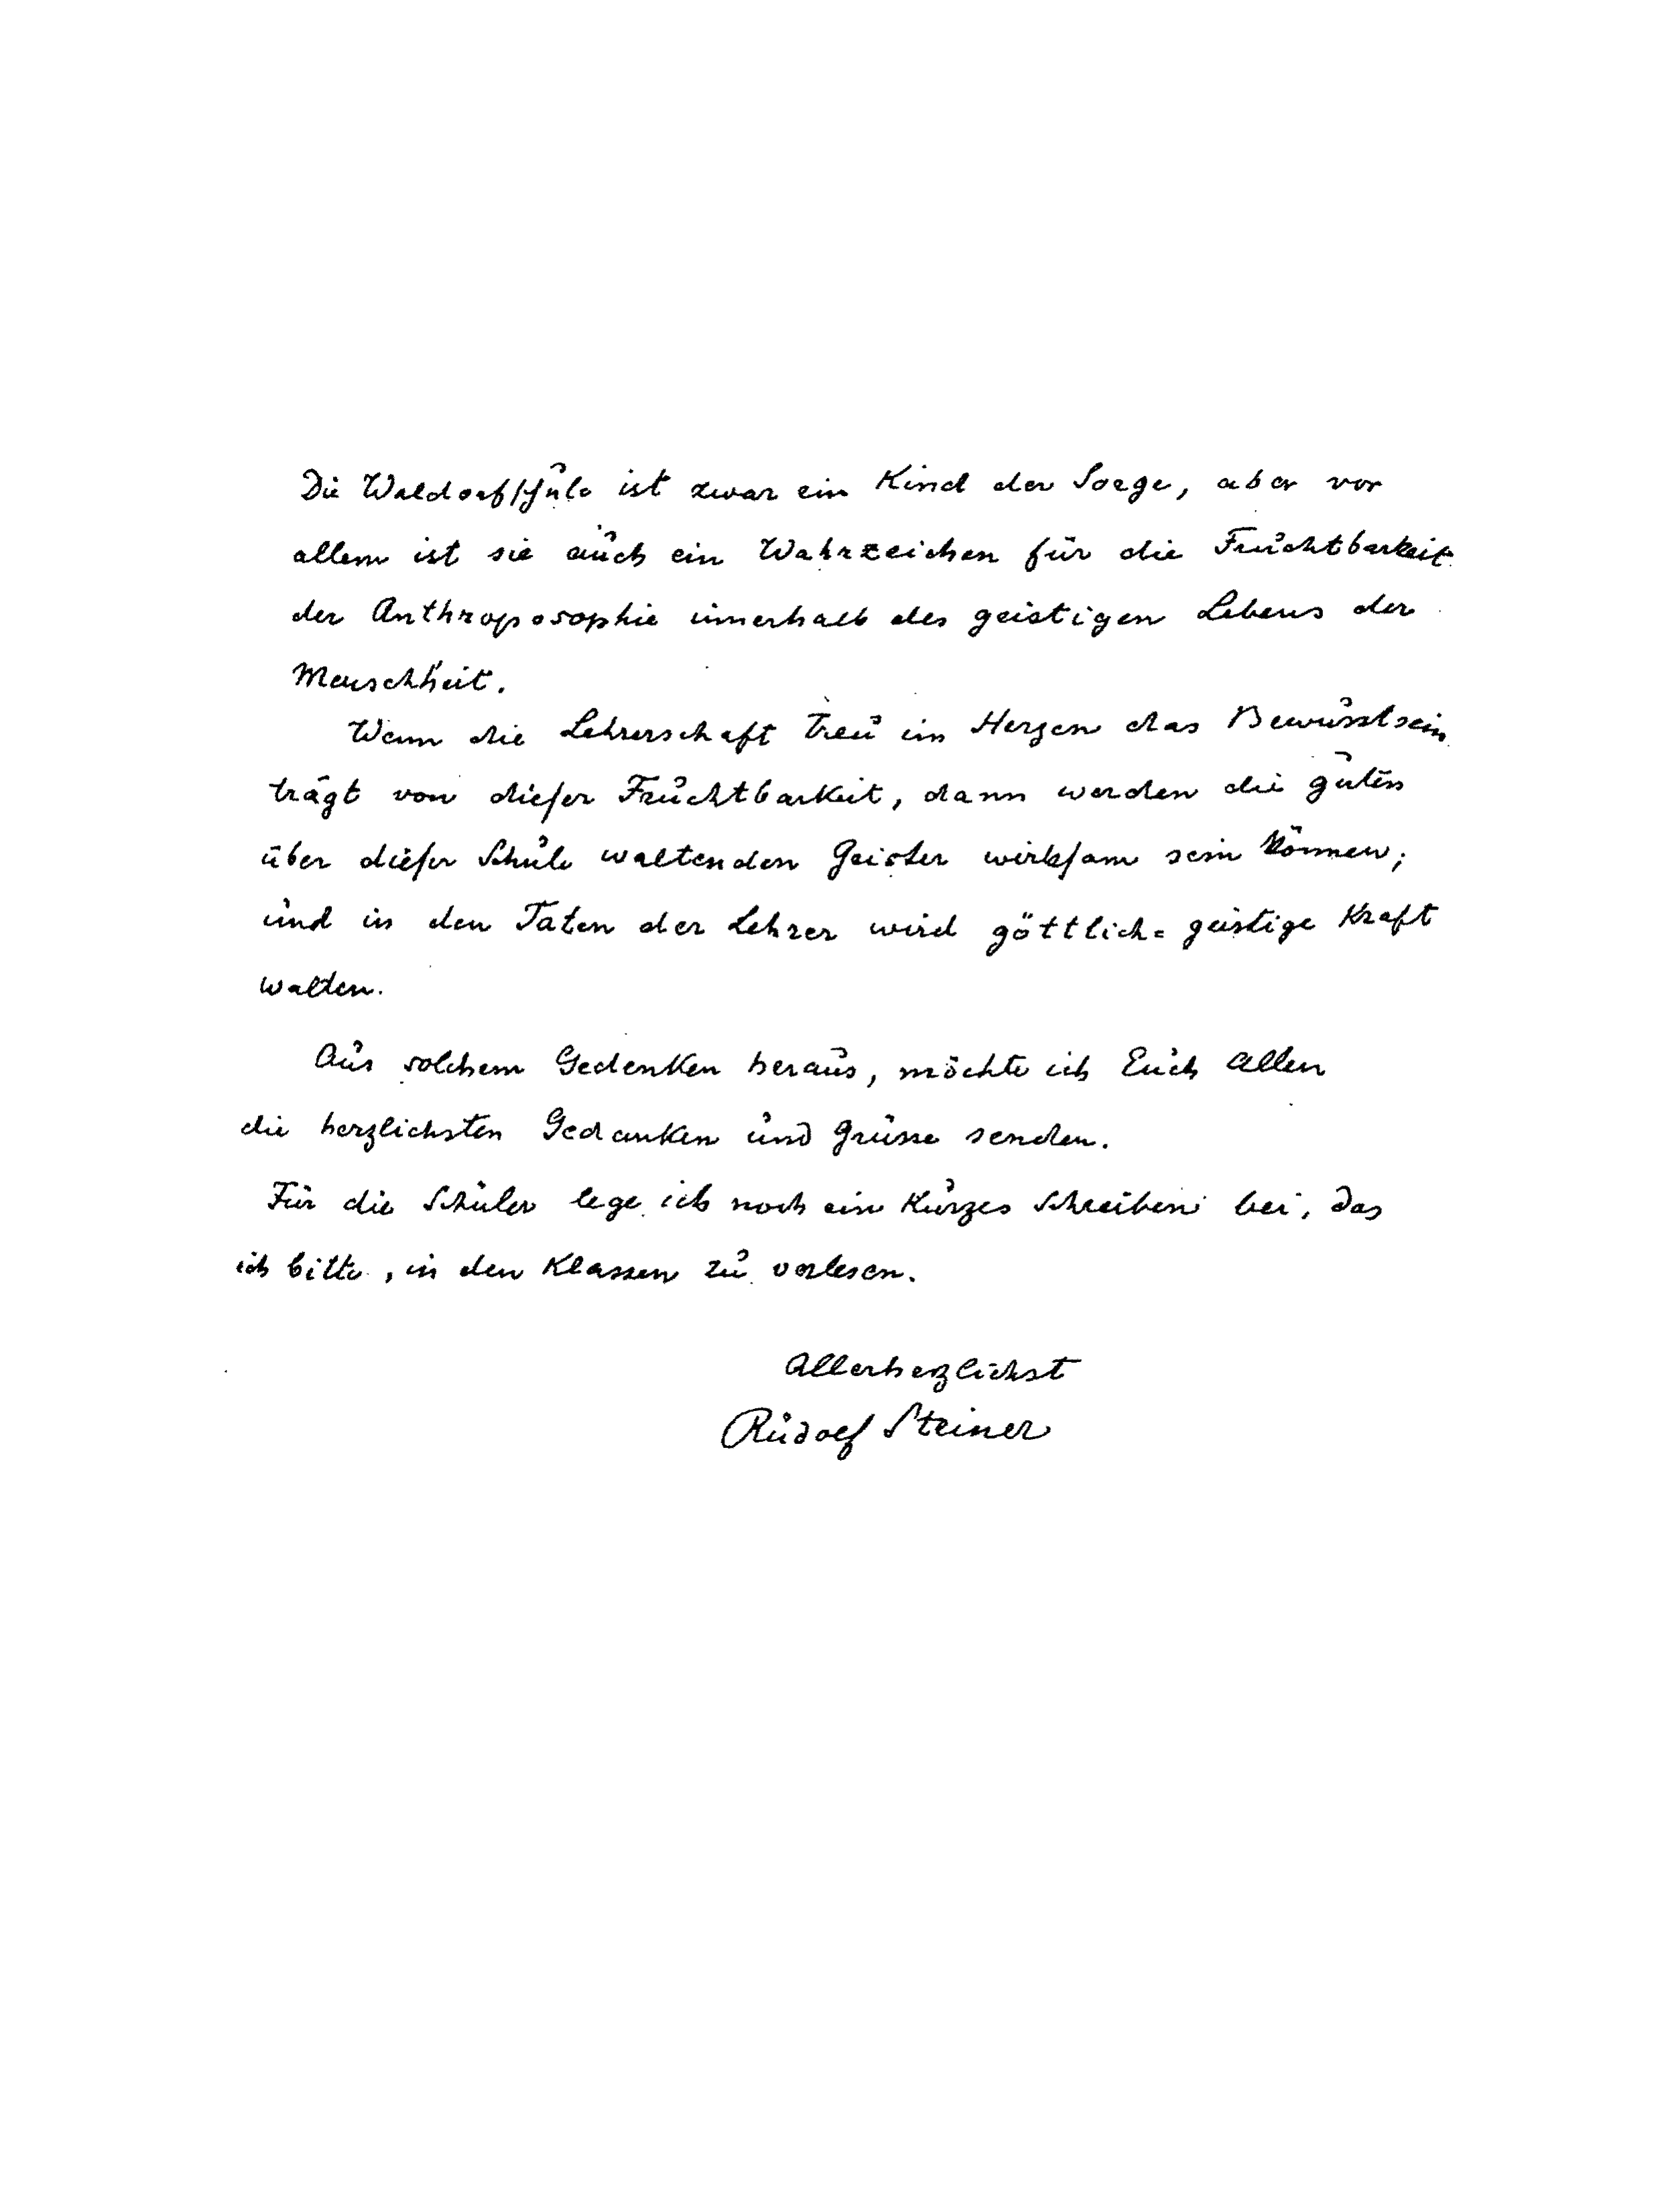 Die Waldorfschule ist zwar ein Kind der Sorge, aber vor
allem ist sie auch ein Wahrzeichen für die Fruchtbarkeit
der Anthroposophie innerhalb des geistigen Lebens der
Menschheit.
Wenn die Lehrerschaft treu im Herzen das Bewusstsein
trägt von dieser Fruchtbarkeit, dann werden die guten
über dieser Schule waltenden Geister wirksam sein können;
und in den Taten der Lehrer wird göttlich=geistige Kraft
walten.
Aus solchem Gedenken heraus, möchte ich Euch allen
die herzlichsten Gedanken und Grüsse senden.
Für die Schüler lege ich noch ein kurzes Schreiben bei, das
ich bitte, in den Klassen zu verlesen.
Allerherzlichst
Rudolf Steiner